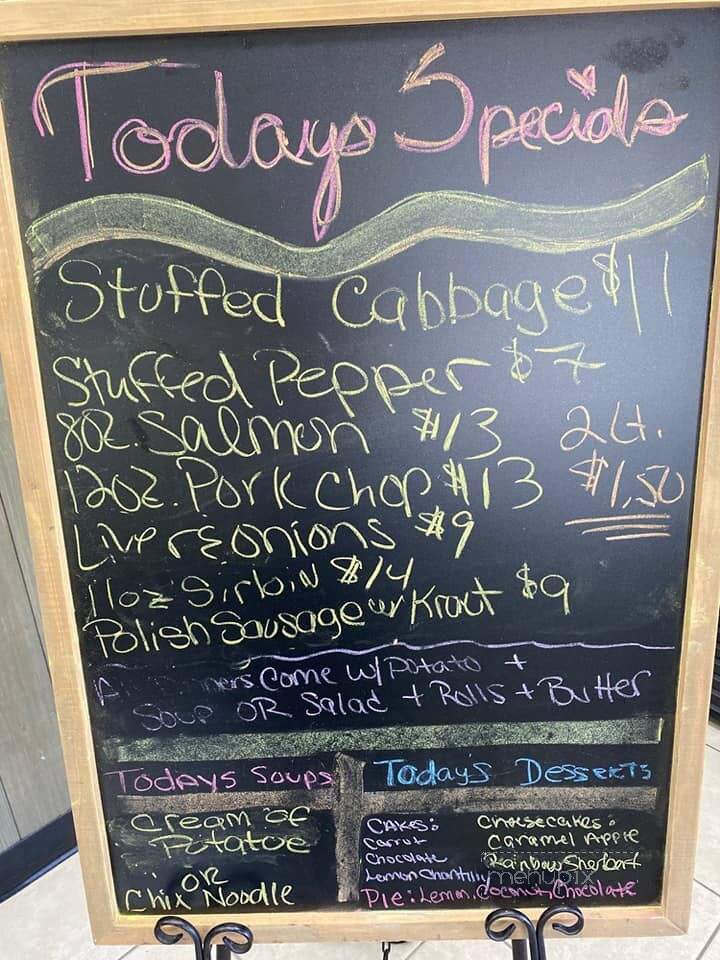 Todays Specials
Stuffed Cabbage $11
Stuffed Pepper $7
8oz. Salmon $13
12oz. Pork Chop $13
2 Lt.
$1.50
Liver & Onions $9
11oz Sirloin $14
Polish Sausage w/ Kraut $9
come w/ Potato +
Soup OR Salad + Rolls + Butter
Todays Soups
Cream of
Potatoe
OR
Chix Noodle
Today's Desserts
CAKES:
Carrot
Chocolate
Lemon Chantilly
Cheesecakes:
Caramel Apple
Rainbow Sherbart
Pie: Lemon, Coconut, Chocolate
menupix